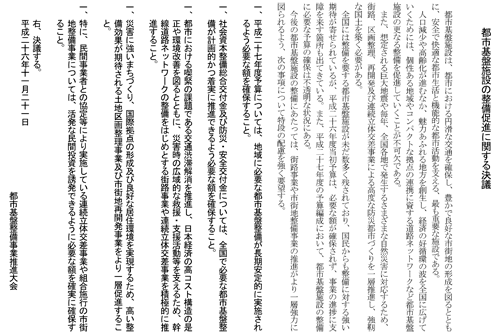 都市基盤施設の整備促進に関する決議
都市基盤施設は、都市における円滑な交通を確保し、豊かで良好な市街地の形成を図るとともに、安全で快適な都市生活と機能的な都市活動を支える、最も重要な施設である。
人口減少や高齢化が進むなか、魅力あふれる地方を創生し、経済の好循環の波を全国に広げていくためには、個性ある地域やコンパクトな拠点の連携に資する道路ネットワークなど都市基盤施設の更なる整備を促進していくことが不可欠である。
また、想定される巨大地震や毎年、全国各地で発生するさまざまな自然災害に対応するため、街路、区画整理、再開発及び連続立体交差事業による高度な防災都市づくりを一層推進し、強靱な国土を築く必要がある。
全国には整備を要する都市基盤施設が未だ数多く残されており、国民からも整備に対する強い期待が寄せられているが、平成二十六年度当初予算は、必要な額が確保されず、事業の進捗に支障を来す箇所も出てきている。また、平成二十七年度の予算編成において、都市基盤施設の整備に必要な予算の確保は不透明な状況にある。
今後の都市基盤施設の整備にあたっては、街路事業や市街地整備事業の推進がより一層強力に図られるよう、次の事項について特段の配慮を強く要望する。
一、平成二十七年度予算については、地域に必要な都市基盤整備が長期安定的に実施されるよう必要な額を確保すること。
一、社会資本整備総合交付金及び防災・安全交付金については、全国で必要な都市基盤整備が計画的かつ着実に推進できるよう必要な額を確保すること。
一、都市における喫緊の課題である交通渋滞解消を推進し、日本経済の高コスト構造の是正や環境改善を図るとともに、災害時の広域的な救援・支援活動等を支えるため、幹線道路ネットワークの整備をはじめとする街路事業や連続立体交差事業を積極的に推進すること。
一、災害に強いまちづくり、国際拠点の形成及び良好な居住環境を実現するため、高い整備効果が期待される土地区画整理事業及び市街地再開発事業をより一層促進すること。
一、特に、民間事業者との協定等により実施している連続立体交差事業や組合施行の市街地整備事業については、活発な民間投資を誘発できるように必要な額を確実に確保すること。
右、決議する。
平成二十六年十一月二十一日
都市基盤整備事業推進大会